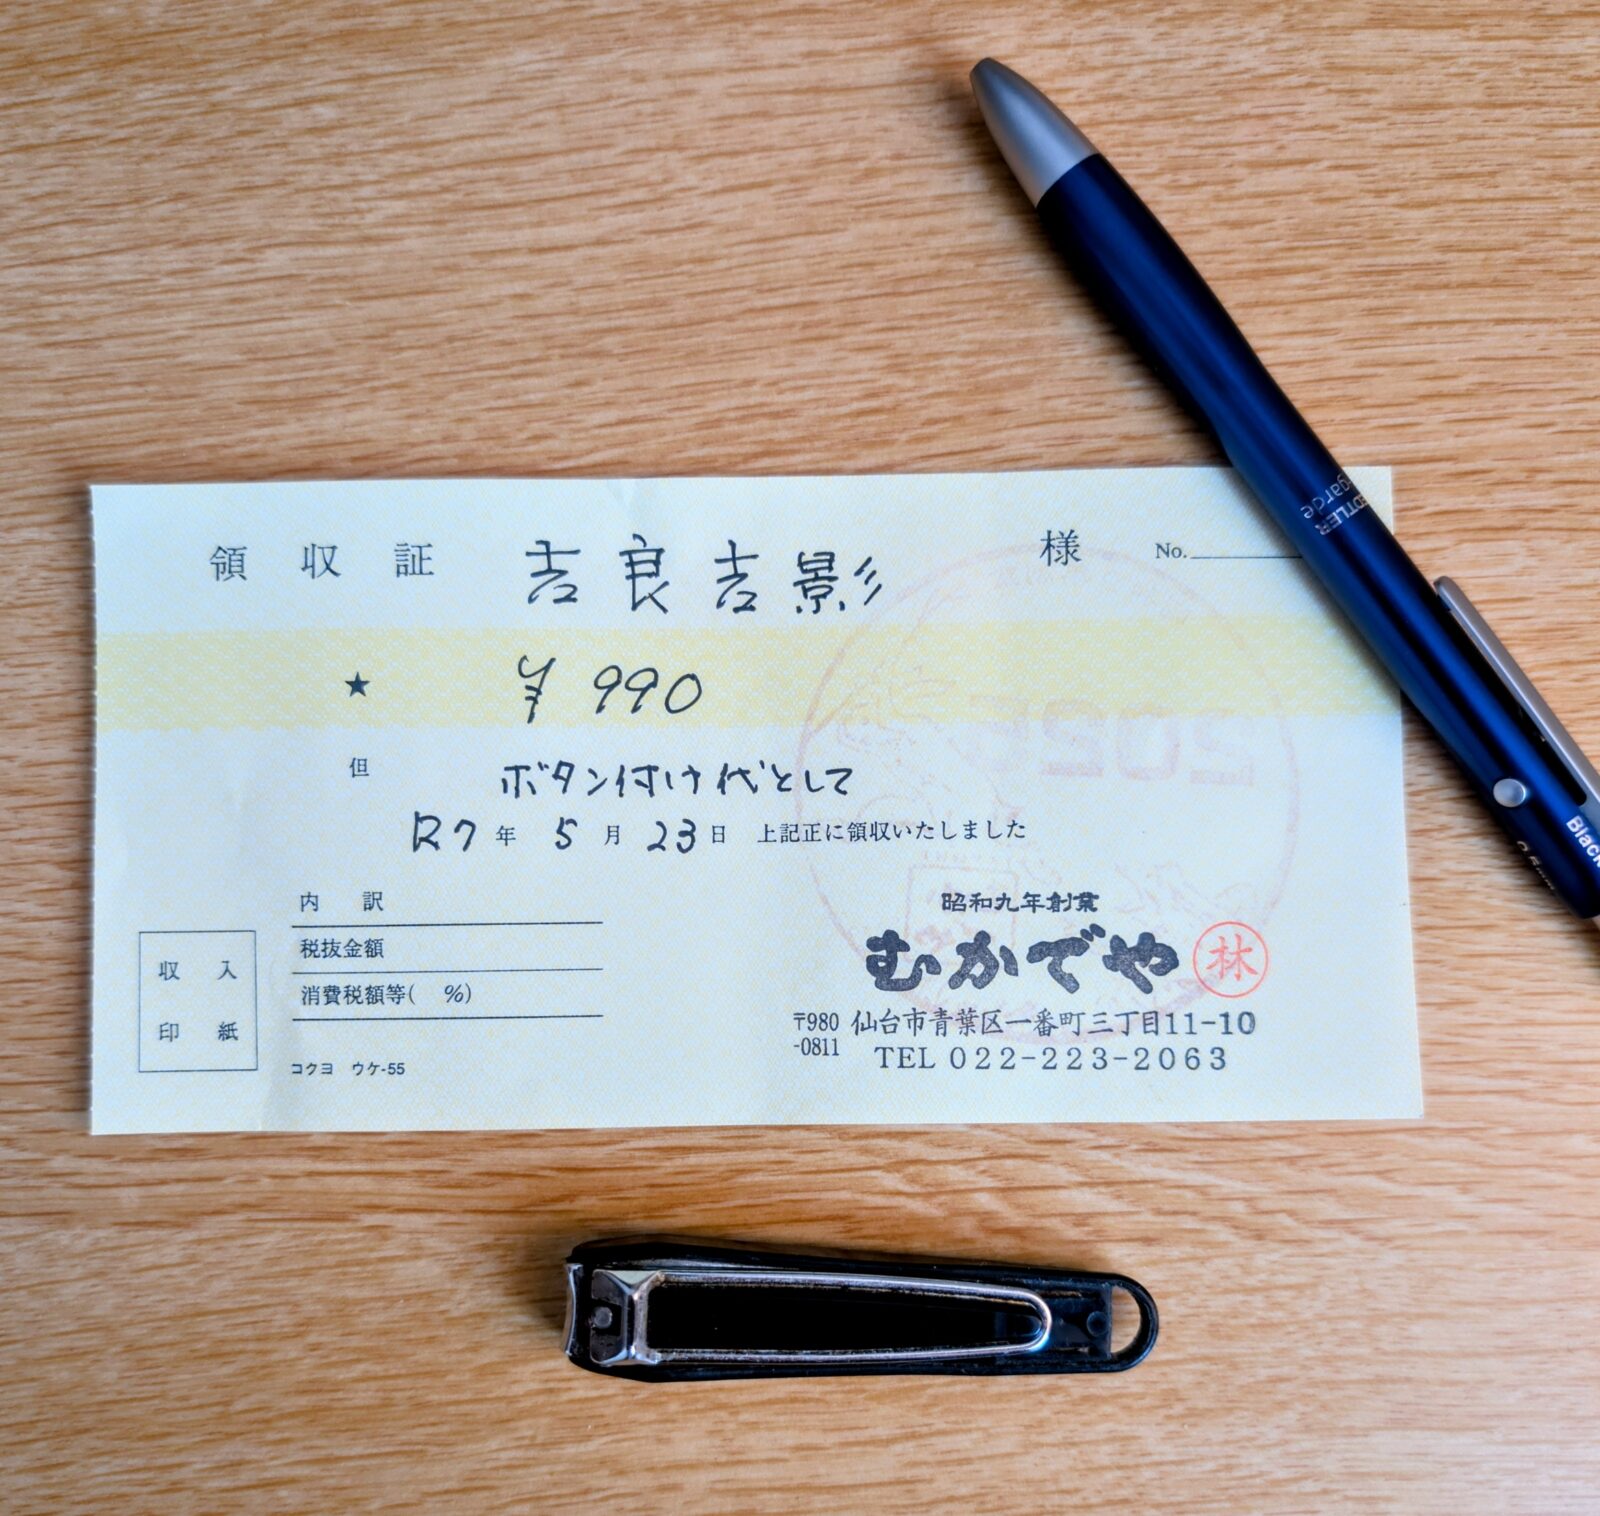 領収証 吉良吉影 様 No.
★ ¥ 990
但 ボタン付け代として
R7年 5月 23日 上記正に領収いたしました
内訳
税抜金額
消費税額等( %)
収入
印紙
コクヨ ウケ-55
昭和九年創業
むかでや 林
〒980-0811 仙台市青葉区一番町三丁目11-10
TEL 022-223-2063
2025
Black